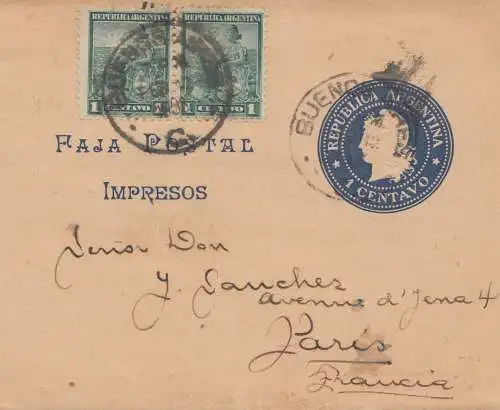 REPUBLICA ARGENTINA REPUBLICA ARGENTINA
1 CENTAVO 1 CENTAVO 1
BUENO
FAJA POSTAL
IMPRESOS
BUENO
REPUBLICA ARGENTINA
1 CENTAVO
Señor Don
J. Sanchez
avenue d'Jena 4
Paris
Francia